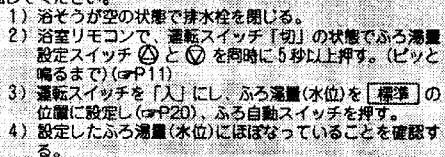 してください。
1) 浴そうが空の状態で排水栓を閉じる。
2) 浴室リモコンで、運転スイッチ「切」の状態でふろ湯量
設定スイッチ と を同時に5秒以上押す。(ピッと
鳴るまで)(☞P11)
3) 運転スイッチを「入」にし、ふろ湯量(水位)を 標準 の
位置に設定し(☞P20)、ふろ自動スイッチを押す。
4) 設定したふろ湯量(水位)にほぼなっていることを確認す
る。